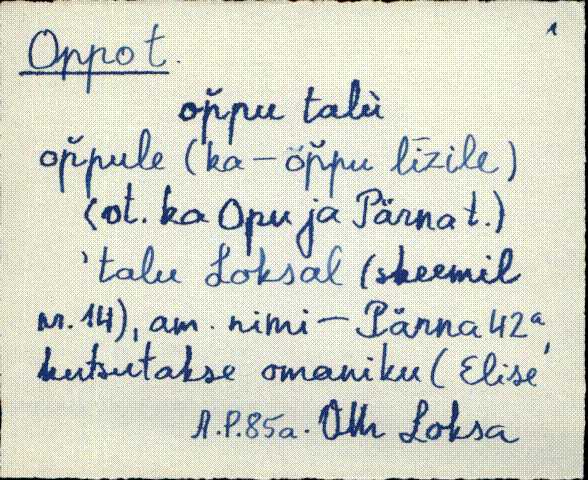 1
Oppo t.
op̆pu talù
op̆pule (ka – öp̆pu līzile)
(ot. ka Opu ja Pärna t.)
'talu Loksal (skeemil
nr. 14), am. nimi – Pärna 42ª,
kutsutakse omaniku (Elise'
A.P. 85a. Loksa